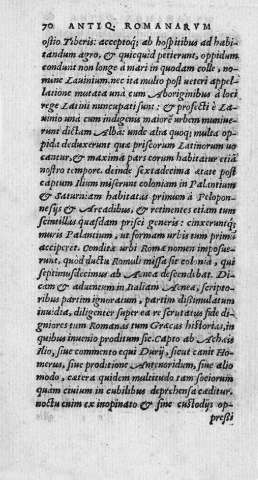 70 ANTIQ. ROMANARVM
ostio Tiberis: acceptoq; ab hospitibus ad habi-
tandum agro, & quicquid petierunt, oppidum
condunt non longe à mari in quodam colle, no-
mine Lauinium. nec ita multo post veteri appel-
latione mutata unà cum Aboriginibus à loci
rege Latini nuncupati sunt: & profecti è La-
uinio unà cum indigenis maiorẽ urbem muniue-
runt dictam Alba: unde alia quoq; multa op-
pida deduxerunt quæ priscorum Latinorum uo
cantur, & maxima pars eorum habitatur etiã
nostro tempore. deinde sextadecima ætate post
captum Ilium miserunt coloniam in Palantium
& Saturniam habitatas primum à Pelopon-
nesijs & Arcadibus, & retinentes etiam tum
scintillas quasdam prisci generis: cinxeruntq;
muris Palantium, ut formam urbis tum primũ
acciperet. Conditæ urbi Romæ nomen imposue-
runt, quòd ductu Romuli missa sit colonia, qui
septimusdecimus ab Aenea descendebat. Di-
cam & aduentum in Italiam Aeneæ, scripto-
ribus partim ignoratum, partim dissimulatum
inuidia, diligenter super ea re scrutatus fide di-
gniores tum Romanas tum Græcas historias, in
quibus inuenio proditum sic. Capto ab Achæis
Ilio, siue commento equi Durij, sicut canit Ho-
merus, siue proditione Antenoridum, siue alio
modo, cætera quidem multitudo tam sociorum
quàm ciuium in cubilibus deprehensa cæditur.
noctu enim ex inopinato & sine custodijs op-
pressi